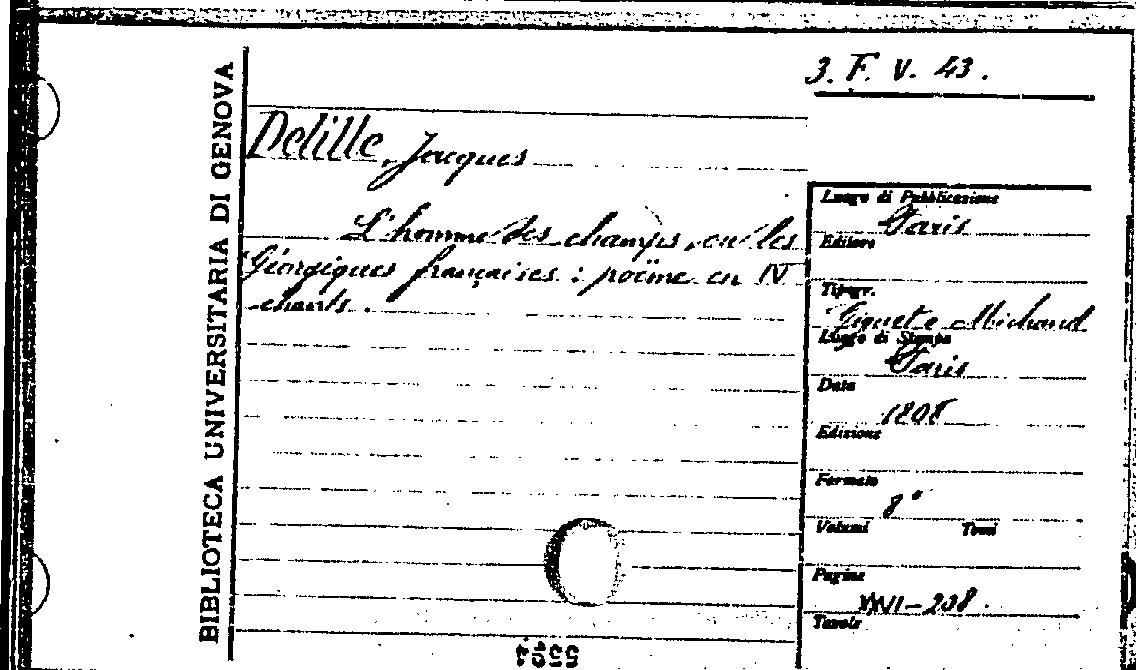 3. F. V. 43.
BIBLIOTECA UNIVERSITARIA DI GENOVA
Delille, Jacques
L'homme des champs, ou les
Géorgiques françaises : poëme en IV
chants.
Luogo di Pubblicazione
Paris
Editore
Tipogr.
Giguet e Michaud
Luogo di Stampa
Paris
Data
1808
Edizione
Formato
8°
Volumi Tomi
Pagine
Tavole